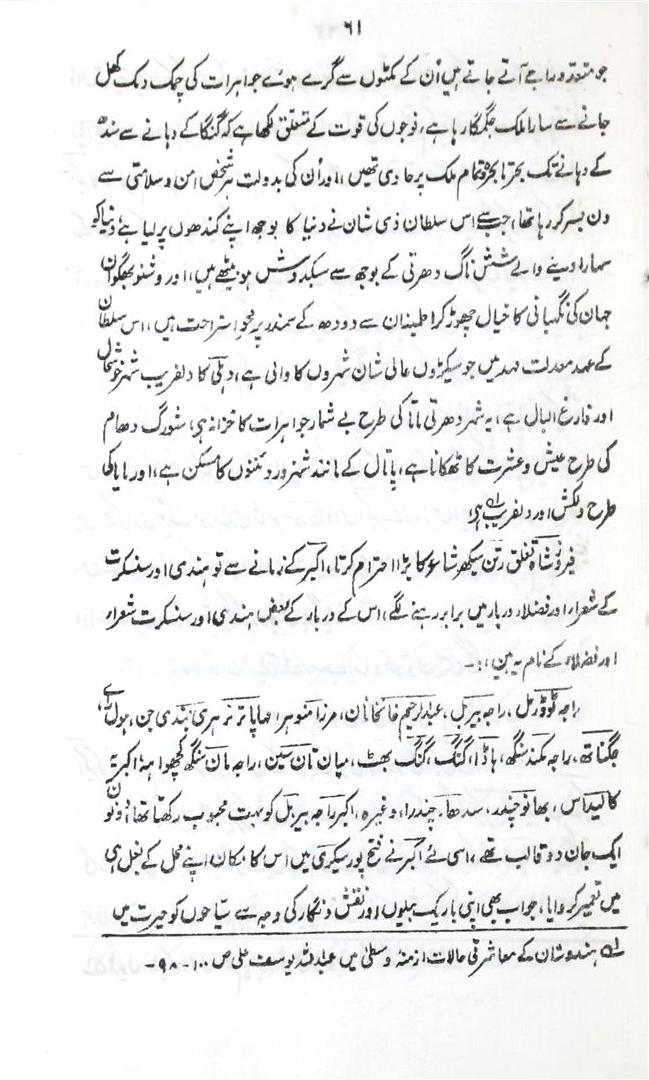 ۶۱
جو متعدد راجے آتے جاتے ہیں اُن کے مکٹوں سے گرے ہوئے جواہرات کی چمک دمک کھل
جانے سے سارا ملک جگمگا رہا ہے، فوجوں کی قوت کے متعلق لکھا ہے کہ گنگا کے دہانے سے سندھ
کے دہانے تک بحر تا بحر وہ تمام ملک پر حاوی تھیں، اور اُن کی بدولت ہر شخص امن و سلامتی سے
دن بسر کر رہا تھا، جب سے اس سلطان ذی شان نے دنیا کا بوجھ اپنے کندھوں پر لیا ہے، دنیا کو
سہارا دینے والے شش ناگ دھرتی کے بوجھ سے سبکدوش ہو بیٹھے ہیں، اور وشنو بھگوان
جہان کی نگہبانی کا خیال چھوڑ کر اطمینان سے دودھ کے سمندر پر محوِ استراحت ہیں، اس سلطان
کے عہد معدلت مہد میں جو سیکڑوں عالی شان شہروں کا والی ہے، دہلی کا دلفریب شہر خوشحال
اور فارغ البال ہے، یہ شہر دھرتی ماتا کی طرح بے شمار جواہرات کا خزانہ ہی، سورگ دھام
کی طرح عیش و عشرت کا ٹھکانا ہے، پاتال کے مانند شہزور دئتوں کا مسکن ہے، اور مایا کی
طرح دلکش اور دلفریب ہی ؂۱
فیروز شاہ تغلق رتن سیکھر شاعر کا بڑا احترام کرتا، اکبر کے زمانے سے تو ہندی اور سنسکرت
کے شعراء اور فضلاء دربار میں برابر رہنے لگے، اس کے دربار کے بعض ہندی اور سنسکرت شعراء
اور فضلاء کے نام یہ ہیں :۔
راجہ ٹوڈرمل، راجہ بیربل، عبدالرحیم خانخاناں، مرزا منوہر، مہاپاتر نرہری بندی جن، ہول رائے
جگناتھ، راجہ مکند سنگھ، ہاڈا، گنگ، گنگ بھٹ، میاں تان سین، راجہ مان سنگھ کچھواہہ، اکبریہ
کالیداس، بھانوچندر، سدھا چندرا، وغیرہ، اکبر راجہ بیربل کو بہت محبوب رکھتا تھا، دونوں
ایک جان دو قالب تھے، اسی لئے اکبر نے فتح پور سیکری میں اس کا مکان اپنے محل کے بغل ہی
میں تعمیر کروایا، جو اب بھی اپنی باریک بیلوں اور نقش و نگار کی وجہ سے سیّاحوں کو حیرت میں
؂۱ ہندوستان کے معاشرتی حالات ازمنہ وسطیٰ میں عبداللہ یوسف علی ص ۱۰۰-۹۸-